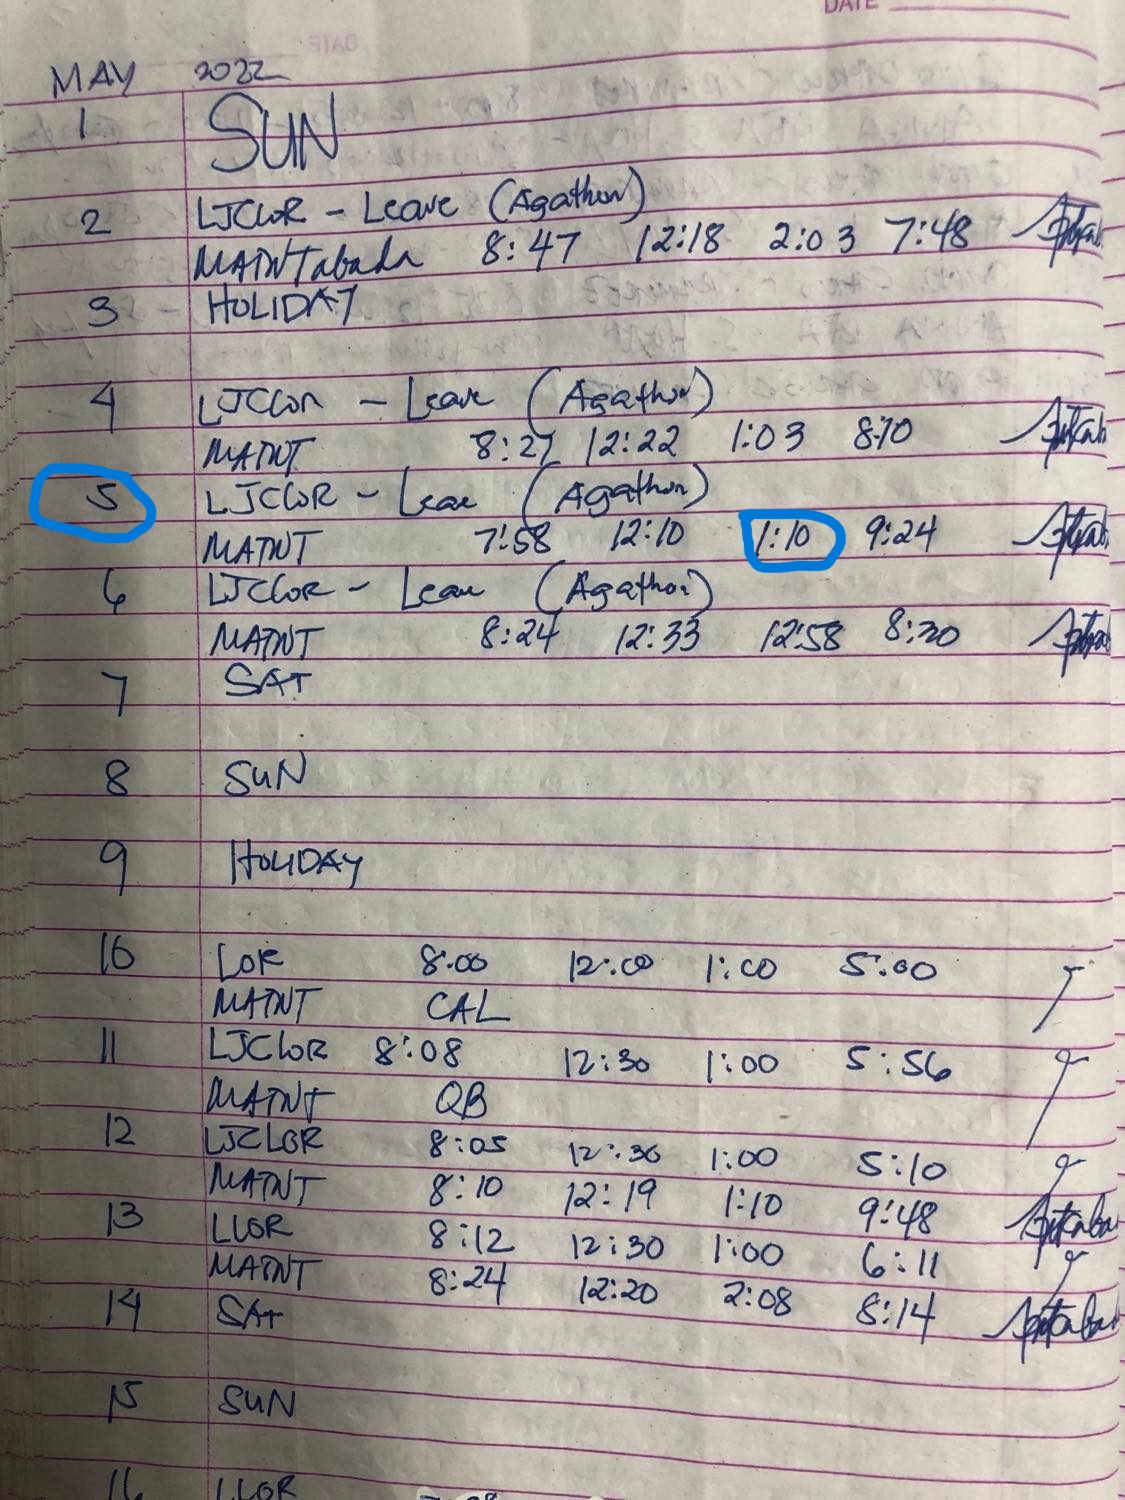 DATE
MAY 2022
1 SUN
2 LJCLOR - Leave (Agathon)
MATNTabada 8:47 12:18 2:03 7:48
3 HOLIDAY
4 LJCLOR - Leave (Agathon)
MATNT 8:27 12:22 1:03 8:10
5 LJCLOR - Leave (Agathon)
MATNT 7:58 12:10 1:10 9:24
6 LJCLOR - Leave (Agathon)
MATNT 8:24 12:33 12:58 8:20
7 SAT
8 SUN
9 HOLIDAY
10 LOR 8:00 12:00 1:00 5:00
MATNT CAL
11 LJCLOR 8:08 12:30 1:00 5:56
MATNT QB
12 LJCLOR 8:05 12:30 1:00 5:10
MATNT 8:10 12:19 1:10 9:48
13 LLOR 8:12 12:30 1:00 6:11
MATNT 8:24 12:20 2:08 8:14
14 SAT
15 SUN
16 LLOR